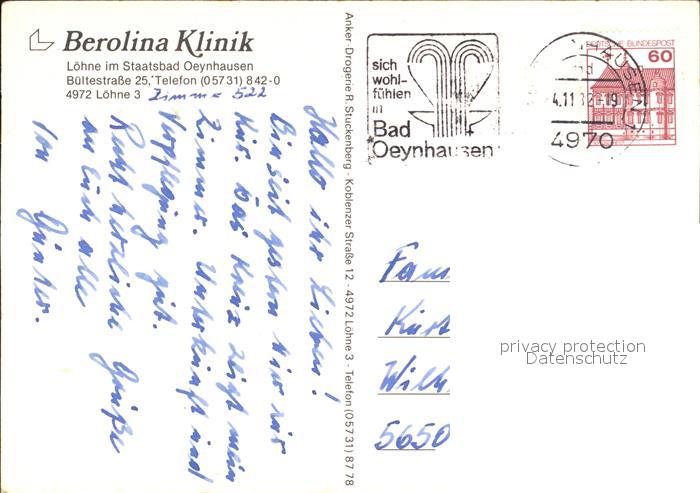 Berolina Klinik
Löhne im Staatsbad Oeynhausen
Bültestraße 25, Telefon (05731) 842-0
4972 Löhne 3 Zimmer 522
Hallo ihr Lieben!
Bin seit gestern hier zur
Kur. Das Kreuz zeigt mein
Zimmer. Unterkunft und
Verpflegung gut.
Recht herzliche Grüße
an Euch alle
von Günter.
Anker-Drogerie R. Stuckenberg - Koblenzer Straße 12 - 4972 Löhne 3 - Telefon (05731) 8778
sich
wohl-
fühlen
in
Bad
Oeynhausen
4970
DEUTSCHE BUNDESPOST
60
Fam.
Kurt
Wilh
5650
privacy protection
Datenschutz